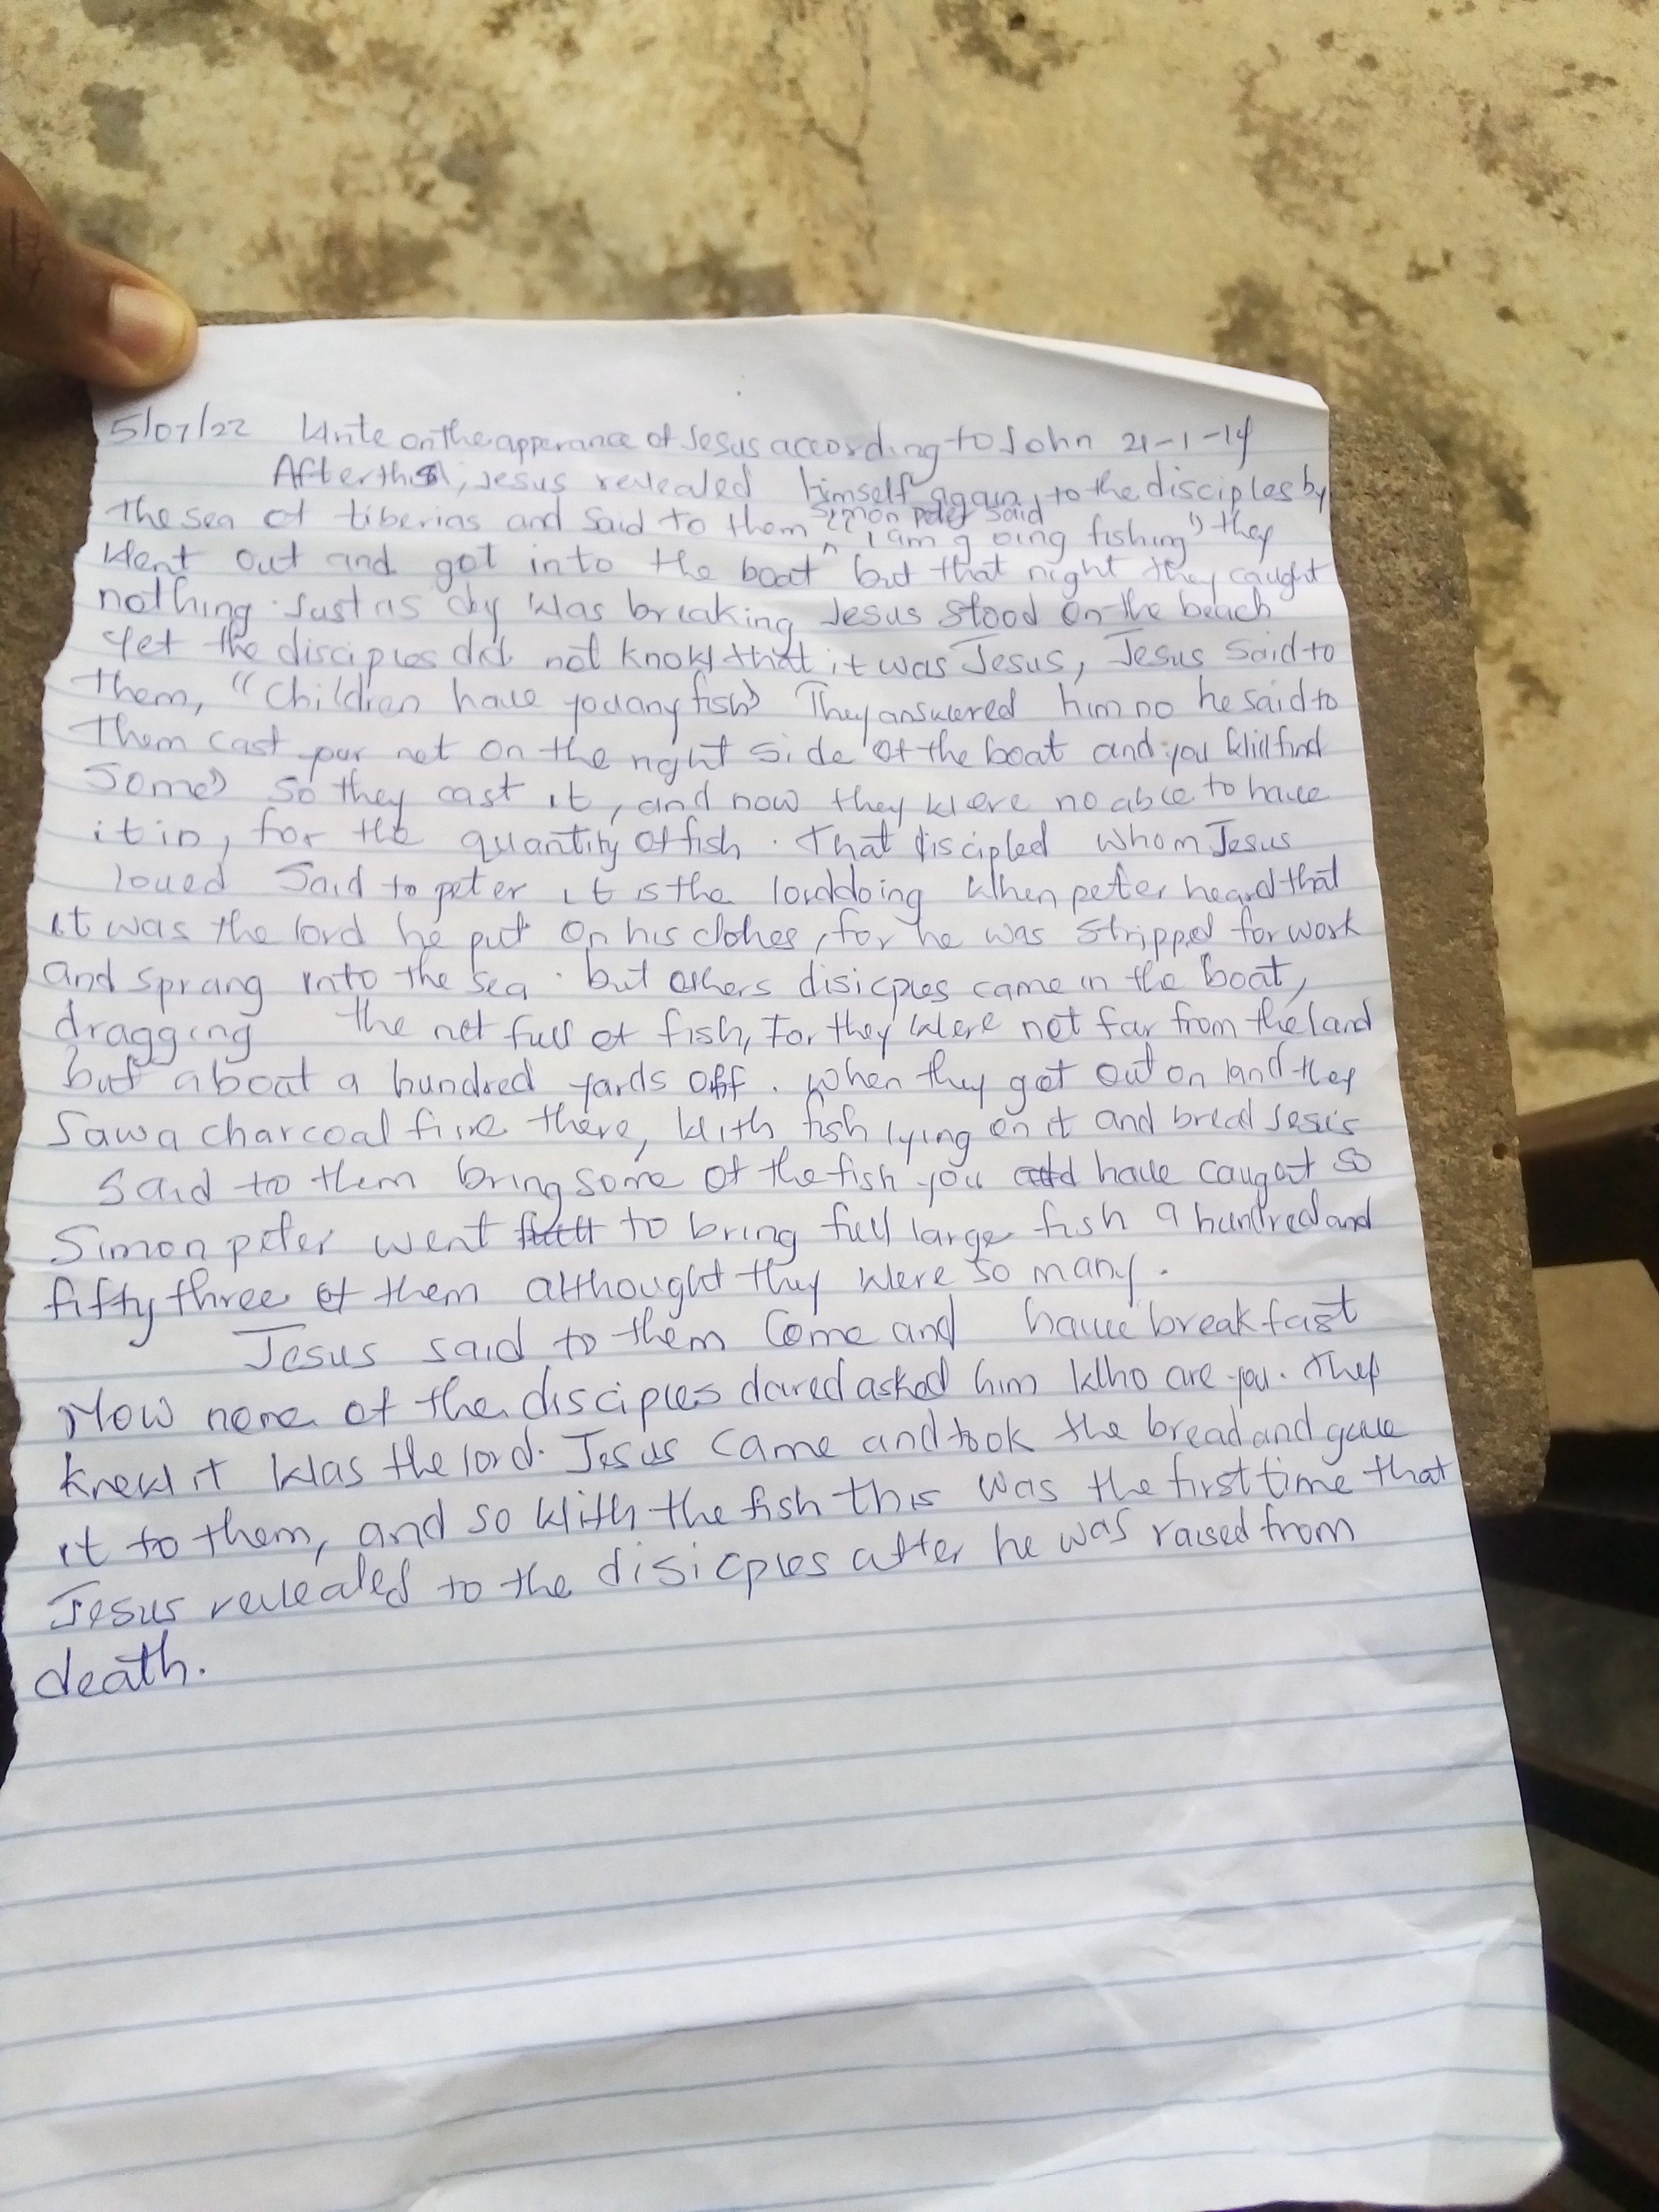 5/07/22 Write on the apperance of Jesus according to John 21-1-14
After this, Jesus revealed himself again, to the disciples by
the sea of tiberias and said to them simon peter said "I am going fishing" they
Went out and got into the boat but that night they caught
nothing. Just as dy was breaking Jesus stood on the beach
yet the disciples did not know that it was Jesus, Jesus said to
them, "Children have you any fish" They answered him no he said to
them cast your net on the right side of the boat and you will find
some" So they cast it, and now they were no able to have
it in, for the quantity of fish. That discipled whom Jesus
loved Said to peter it is the lord doing When peter heard that
it was the lord he put on his clohes, for he was stripped for work
and sprang into the sea. but others disicples came in the boat,
dragging the net full of fish, For they were not far from the land
but about a hundred yards off. When they get out on land they
Saw a charcoal fire there, with fish lying on it and bread Jesus
Said to them bring some of the fish you have caugot so
Simon peter went to bring full large fish a hundred and
fifty three of them althought they were so many.
Jesus said to them Come and have breakfast
Now none of the disciples dared asked him Who are you. They
knew it was the lord. Jesus came and took the bread and gave
it to them, and so with the fish this was the first time that
Jesus revealed to the disicples after he was raised from
death.